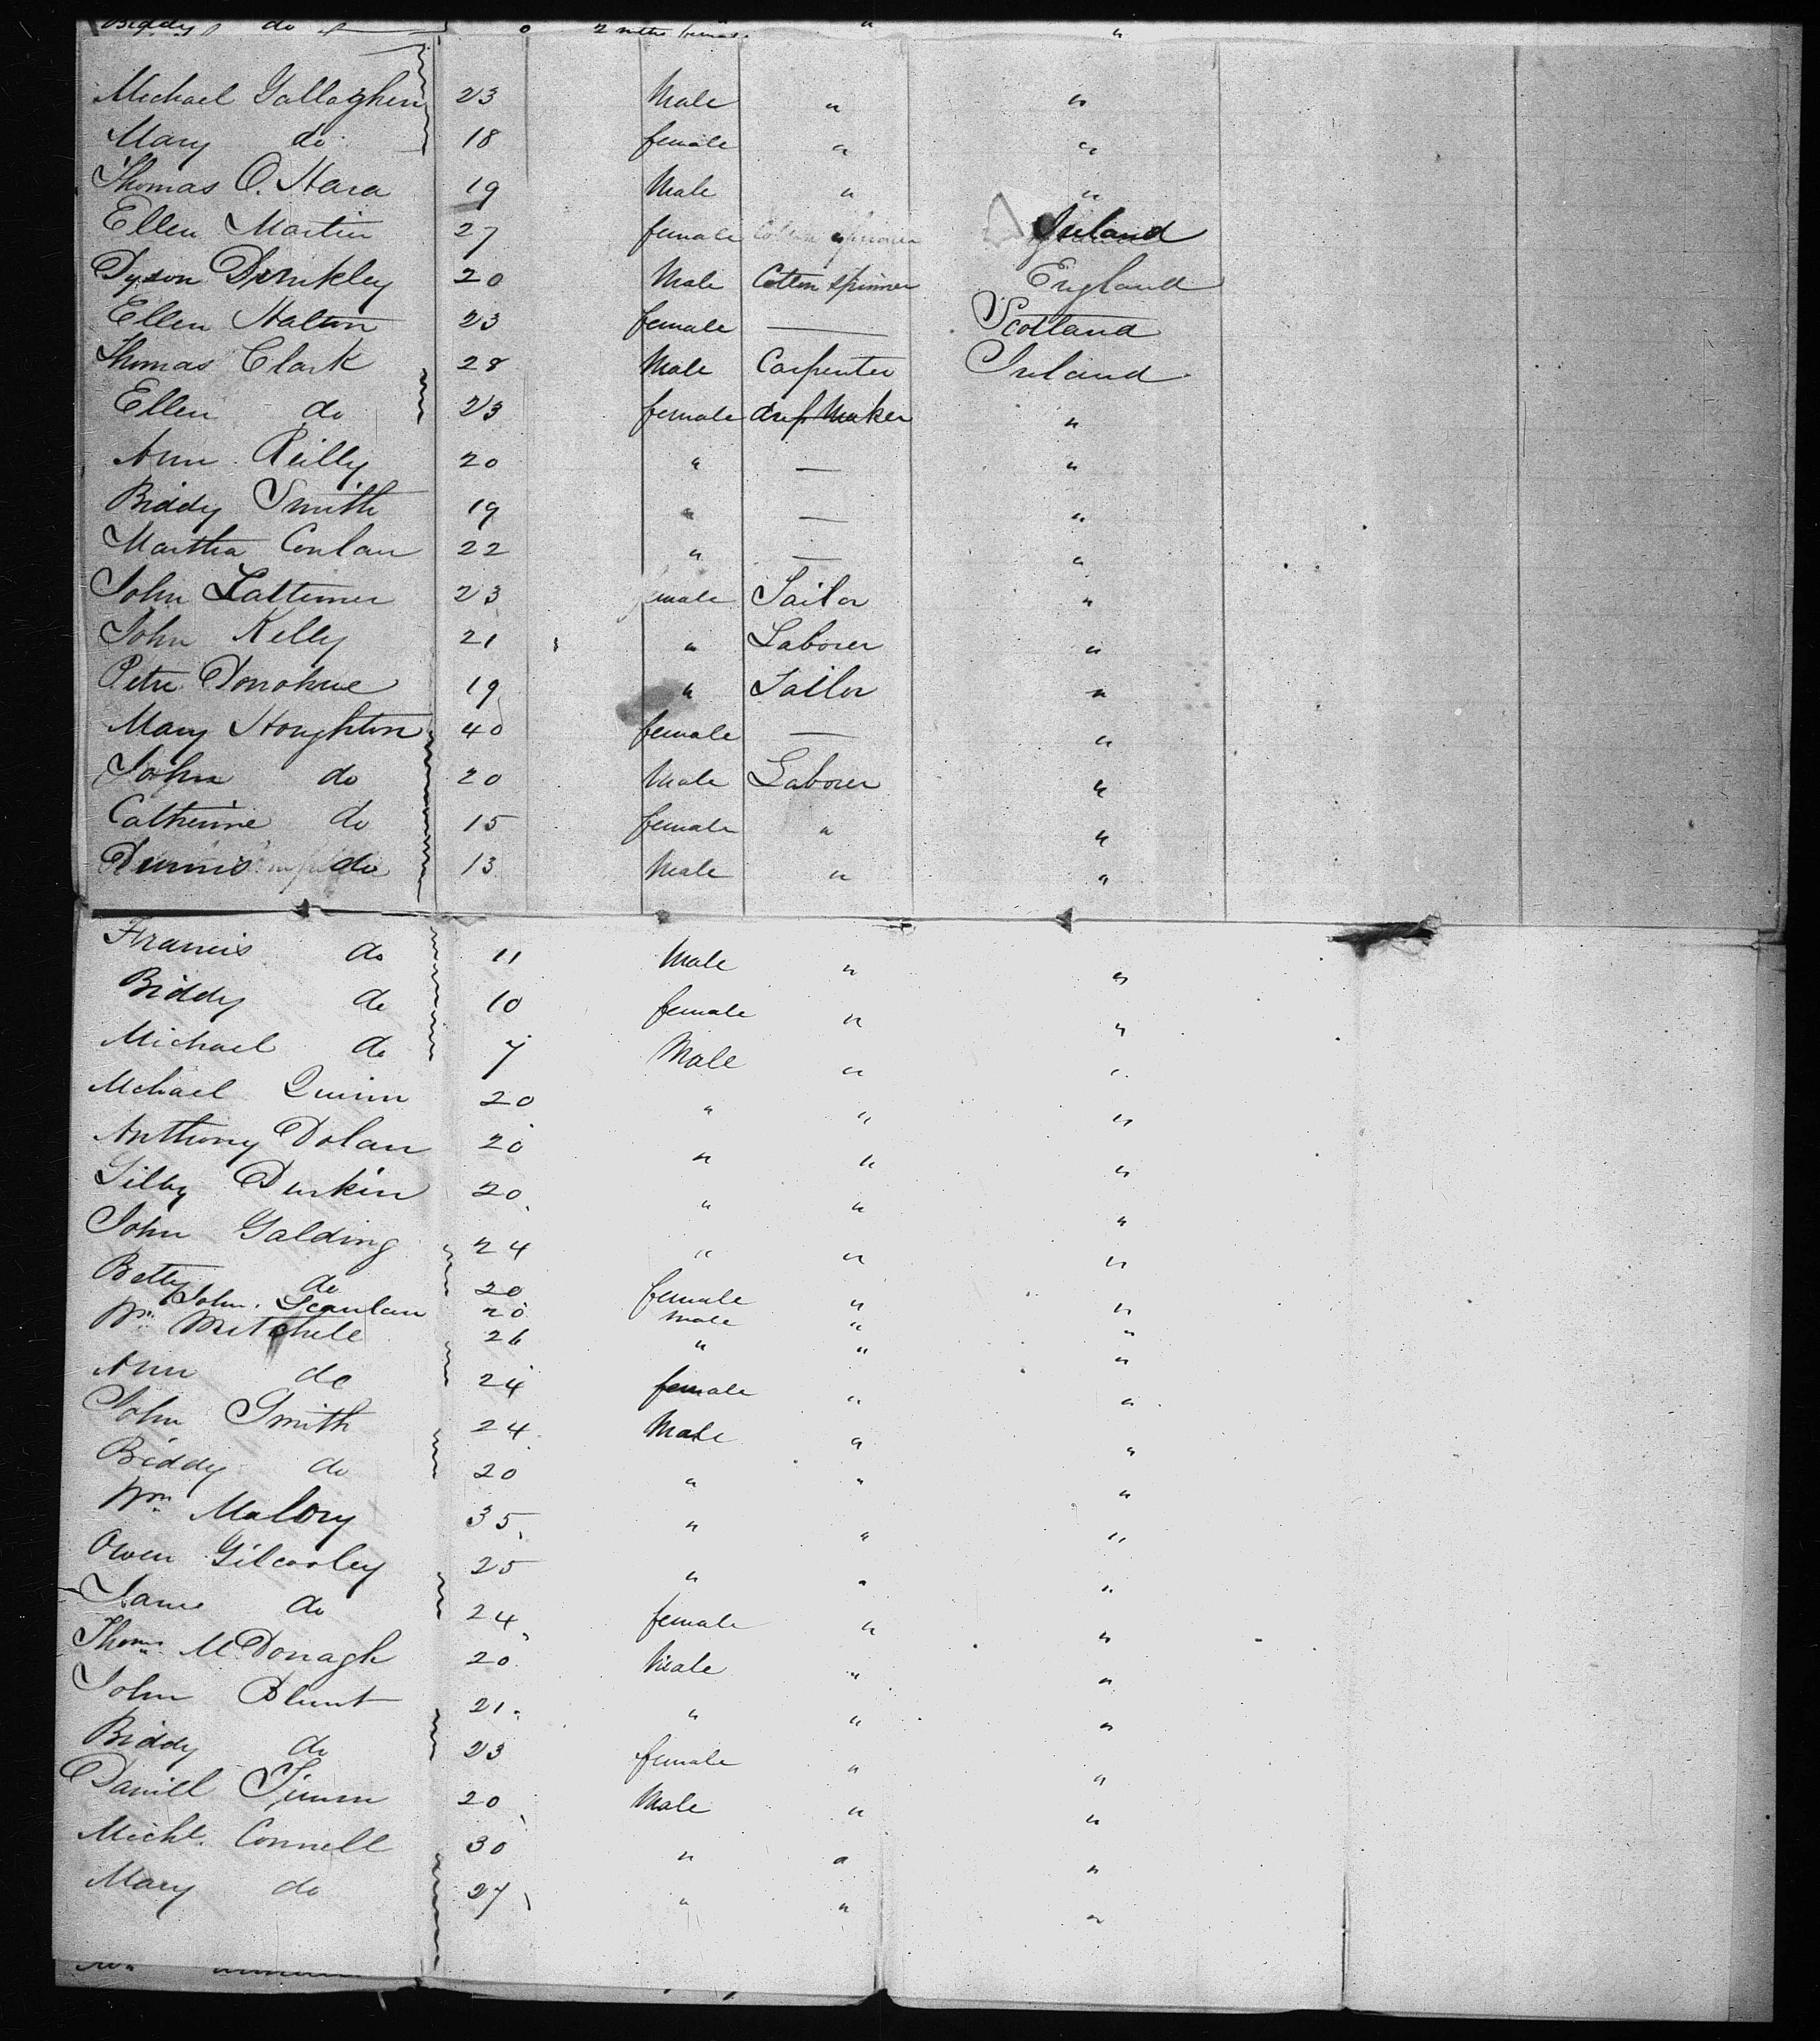 Biddy do 0 2 mths female " "
Michael Gallagher 23 Male " "
Mary do 18 female " "
Thomas O. Hara 19 Male " "
Ellen Martin 27 female Cotton spinner Ireland
Dyson Drinkley 20 Male Cotton spinner England
Ellen Halton 23 female — Scotland
Thomas Clark 28 Male Carpenter Ireland
Ellen do 23 female dress Maker "
Ann Reilly 20 " — "
Biddy Smith 19 " — "
Martha Conlan 22 " — "
John Lattimer 23 male Tailor "
John Kelly 21 " Laborer "
Peter Donohue 19 " Tailor "
Mary Houghton 40 female — "
John do 20 Male Laborer "
Catherine do 15 female " "
Dennis do 13 Male " "
Francis do 11 Male " "
Biddy do 10 female " "
Michael do 7 Male " "
Michael Quinn 20 " " "
Anthony Dolan 20 " " "
Durkin 20 " " "
John Galding 24 " " "
Betty do 20 female " "
John. Scanlan 20 male " "
Wm. Mitchell 26 " " "
Ann do 24 female " "
John Smith 24 Male " "
Biddy do 20 " " "
Wm Malory 35 " " "
Owen Gilcooley 25 " " "
Jane do 24 female " "
Thoms. McDonagh 20 Male " "
John Blunt 21 " " "
Biddy do 23 female " "
Daniell 20 Male " "
Michl. Connell 30 " " "
Mary do 27 " " "